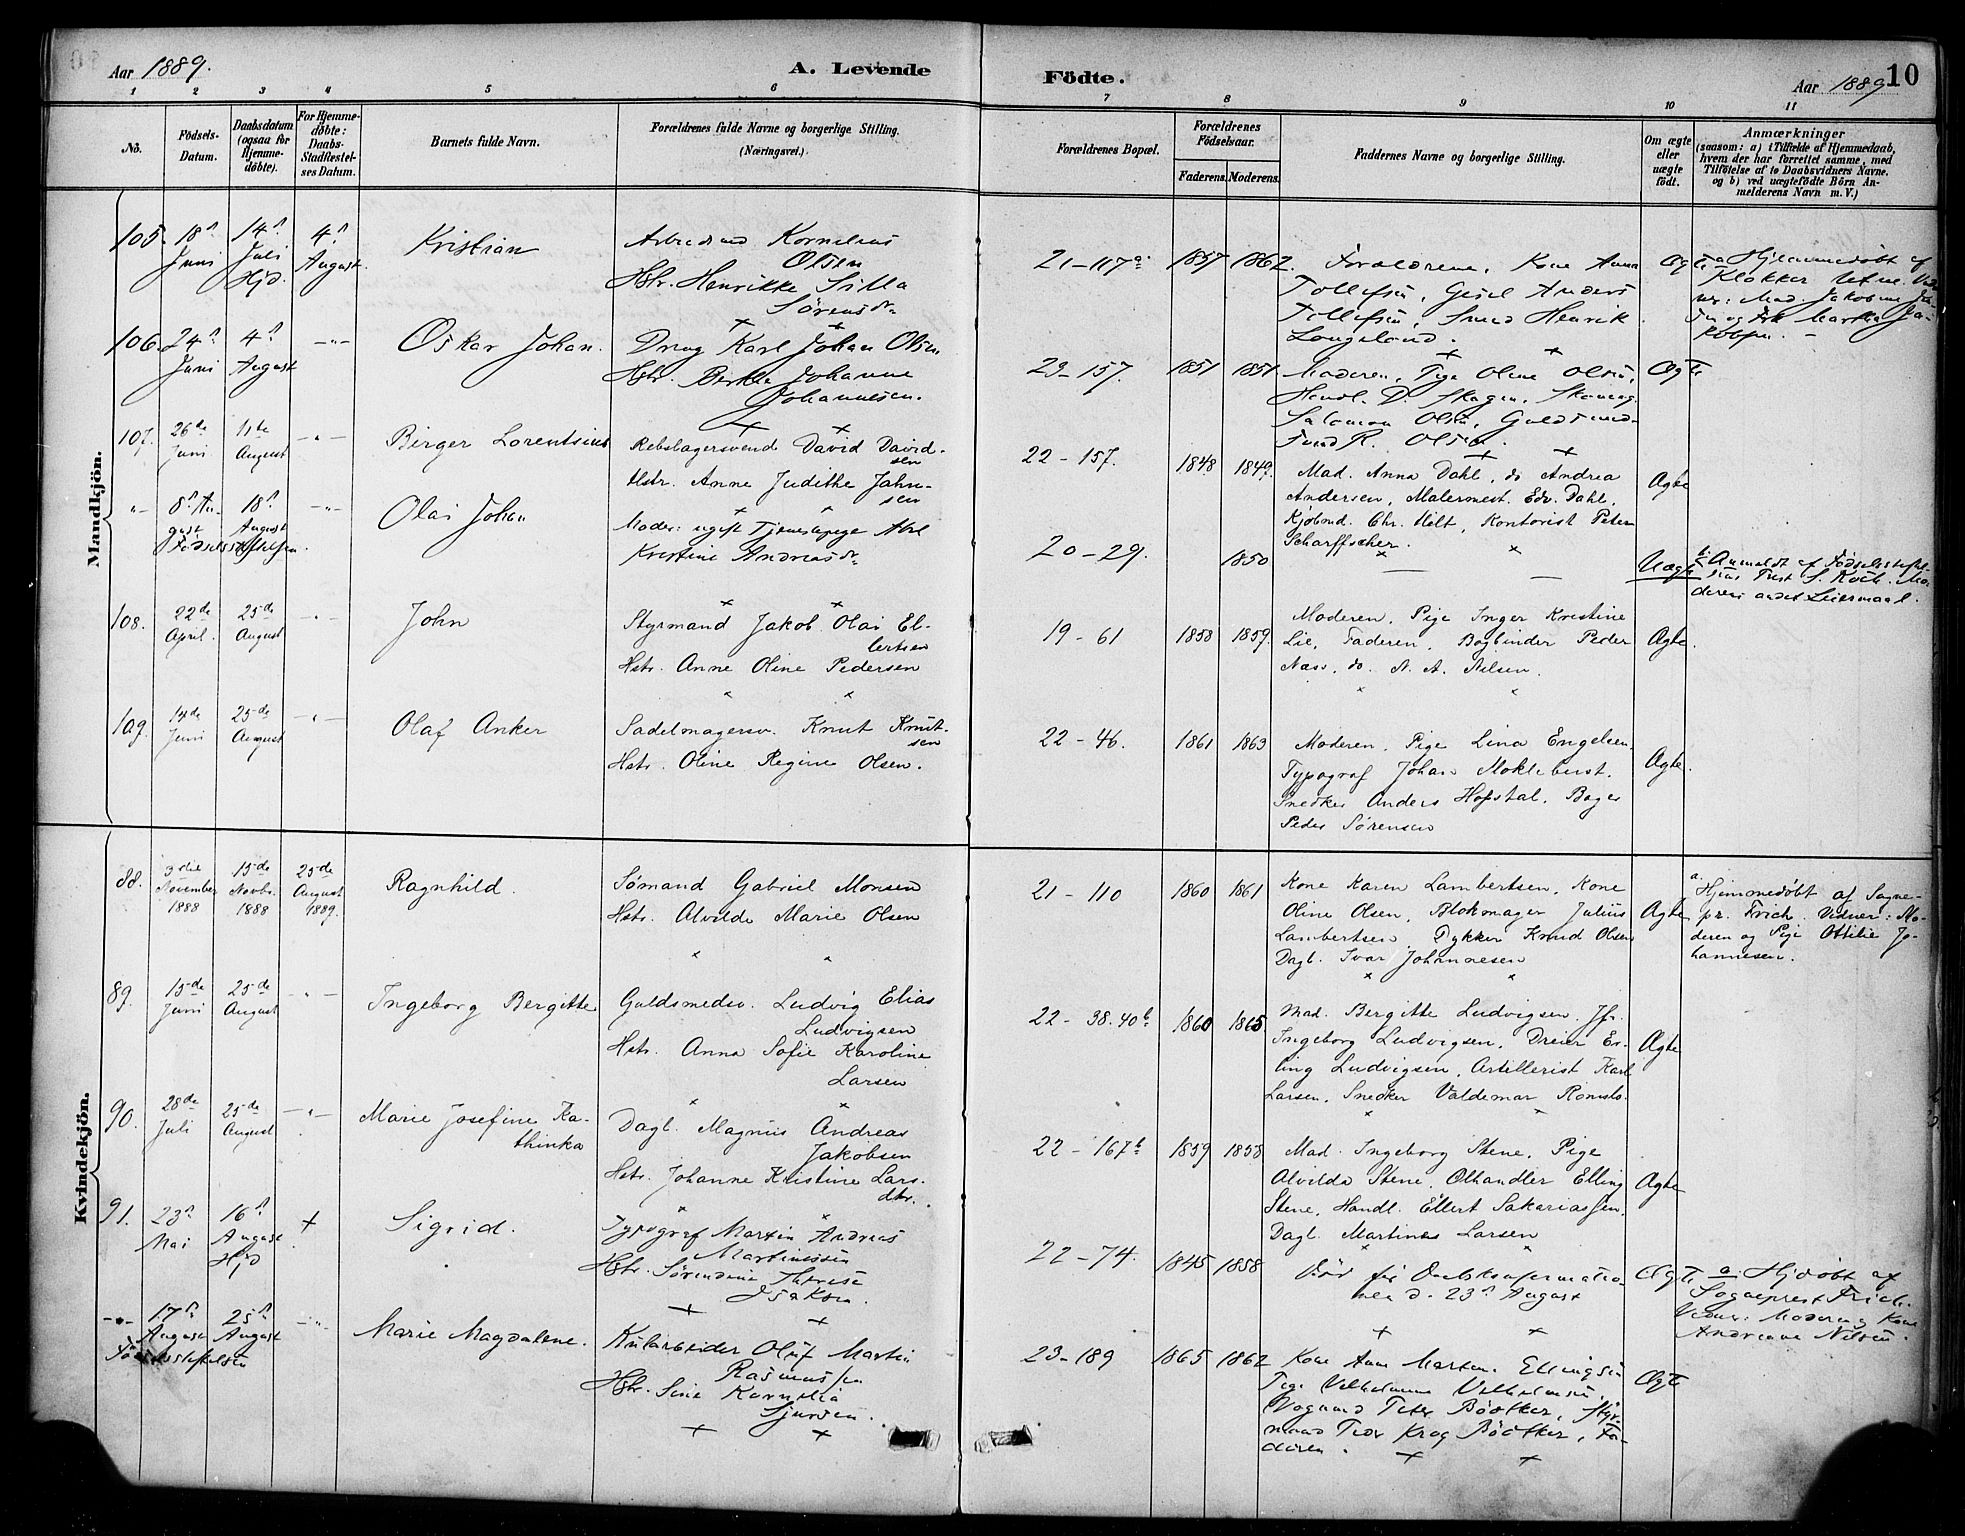 Aar 1889.
A. Levende
Födte.
Aar 1889
10
1 2 3 4 5 6 7 8 9 10 11
No.
Födsels-
Datum.
Daabsdatum
(ogsaa for
Hjemme-
døbte).
For Hjemme-
døbte:
Daabs-
Stadfæstel-
ses Datum.
Barnets fulde Navn.
Forældrenes fulde Navne og borgerlige Stilling.
(Næringsvei.)
Forældrenes Bopæl.
Forældrenes
Födselsaar.
Faderens. Moderens.
Faddernes Navne og borgerlige Stilling.
Om ægte
eller
uægte
født.
Anmærkninger
(saasom: a) i Tilfælde af Hjemmedaab,
hvem der har forrettet samme, med
Tilføielse af to Daabsvidners Navne.
og b) ved uægtefødte Börn An-
melderens Navn m. V.)
Mandkjön.
105. 18 Juni
14 Juli Hjd.
4 August.
Kristian
Kornelius
Olsen
Hstr. Henrikke Silla
Sörensdr
21-117a 1857 1862.
Forældrene, Kone Anna
Tollefsen, Anders
Tollefsen, Smed Henrik
Langeland.
Ægte
a Hjemmedöbt af
Klokker
Mad. Jakobine
106. 24 Juni
4 August
-"-
Oskar Johan.
Karl Johan Olsen
Hstr. Johanne
Johannesen.
23-157. 1851 1851
Moderen, Pige Oline Olsen,
Handl. D. Skagen,
Salomon Olsen, Guldsmed-
svend R. Olsen.
Ægte
107. 26de Juni
11te August
-"-
Birger Lorentsius
Rebslagersvend David David-
sen
Hstr. Anne Judithe Jahn-
sen
22-157. 1848 1849.
Mad. Anna Dahl, do Andrea
Andersen, Malermest. Edv. Dahl,
Kjöbmd. Chr. Holt, Kontorist Peter
Scharffscher.
Ægte
-"- 8 Au-
gust
Födselsstiftelsen.
18 August
-"-
Olai Johan
Moder: ugift Tjenestepige
Kristine Andreasdr
20-29. 1850
Uægte
b. Anmeldt af Födselsstiftel-
sens
derens andet Leiermaal.
108. 22de April.
25de August
-"-
John
Styrmand Jakob Olai El-
lertsen
Hstr. Anne Oline Pedersen
19-61 1858 1859.
Moderen, Pige Inger Kristine
Lie, Faderen, Bogbinder Peder
Næss, do. N. A. Nilsen.
Ægte.
109. 14de Juni
25de August
-"-
Olaf Anker
Sadelmagersv. Knut Knut-
sen
Hstr. Oline Regine Olsen.
22-46. 1861 1863
Moderen, Pige Lina Engelsen,
Typograf Johan Moklebust,
Snedker Anders Hofstal, Bager
Peder Sörensen
Ægte.
Kvindekjön.
88. 3die November 1888
15de Novbr. 1888
25de August 1889.
Ragnhild.
Sömand Gabriel Monsen
Hstr. Alvilde Marie Olsen
21-110 1860 1861
Kone Karen Lambertsen, Kone
Oline Olsen, Blokmager Julius
Lambertsen, Dykker Knud Olsen
Dagl. Ivar Johannesen
Ægte
a. Hjemmedöbt af Sogne-
pr. Frich. Vidner: Mo-
deren og Pige Ottilie Jo-
hannesen.
89. 15de Juni
25de August
-"-
Ingeborg Bergitte
Guldsmedsv. Ludvig Elias
Ludvigsen
Hstr. Anna Sofie Karoline
Larsen
22-38.40b 1860 1865
Mad. Bergitte Ludvigsen, Jfr.
Ingeborg Ludvigsen, Dreier Er-
ling Ludvigsen, Artillerist Karl
Larsen, Snedker Valdemar
Ægte
90. 28de Juli
25de August
-"-
Marie Josefine Ka-
thinka
Dagl. Magnus Andreas
Jakobsen
Hstr. Johanne Kristine Lars-
dtr.
22-167b 1859 1858
Mad. Ingeborg Stene, Pige
Alvilda Stene, Ølhandler Elling
Stene, Handl. Ellert Sakariassen,
Dagl. Martinus Larsen
Ægte
91. 23 Mai
16 August Hjd
+
Sigrid.
Typograf Martin Andreas
Martinussen
Hstr. Sörendine Therese
22-74. 1845 1858
Död för
d. 23 August
Ægte
a. Hjdöbt af
Sogneprest Frich.
Vidner: Moderen og Kone
Andreane Nilsen.
-"- 17 August
Födselsstiftelsen
25 August
-"-
Marie Magdalene.
Kularbeider Oluf Martin
Rasmussen
Hstr. Sine Kornelia
Sjursen.
23-189 1865 1862
Kone Ane Ellingsen
Pige Vilhelmine Vilhelmsen,
Vognmd Peter Bödtker, Styr-
mand Peder Krog Bödtker, Fa-
deren.
Ægte